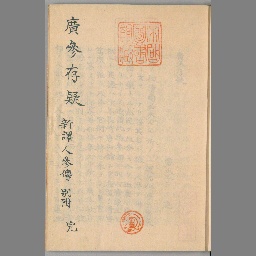 廣參存疑
新譯人參傳 別附 完